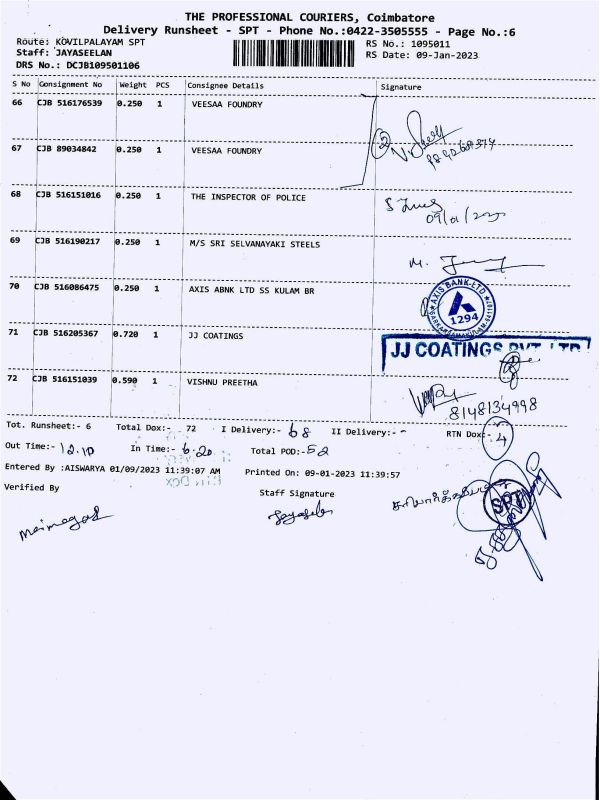 THE PROFESSIONAL COURIERS, Coimbatore
Delivery Runsheet - SPT - Phone No.:0422-3505555 - Page No.:6
Route: KOVILPALAYAM SPT RS No.: 1095011
Staff: JAYASEELAN RS Date: 09-Jan-2023
DRS No.: DCJB109501106
S No Consignment No Weight PCS Consignee Details Signature
66 CJB 516176539 0.250 1 VEESAA FOUNDRY
67 CJB 89034842 0.250 1 VEESAA FOUNDRY
68 CJB 516151016 0.250 1 THE INSPECTOR OF POLICE
69 CJB 516190217 0.250 1 M/S SRI SELVANAYAKI STEELS
70 CJB 516086475 0.250 1 AXIS ABNK LTD SS KULAM BR
AXIS BANK-LTD
1294
71 CJB 516205367 0.720 1 JJ COATINGS
JJ COATINGS PVT. LTD
72 CJB 516151039 0.590 1 VISHNU PREETHA
8148134998
Tot. Runsheet:- 6 Total Dox:- 72 I Delivery:- 68 II Delivery:- - RTN Dox:- 4
Out Time:- 12.10 In Time:- 6.20 Total POD:- 52
Entered By :AISWARYA 01/09/2023 11:39:07 AM Printed On: 09-01-2023 11:39:57
Verified By Staff Signature
SPT